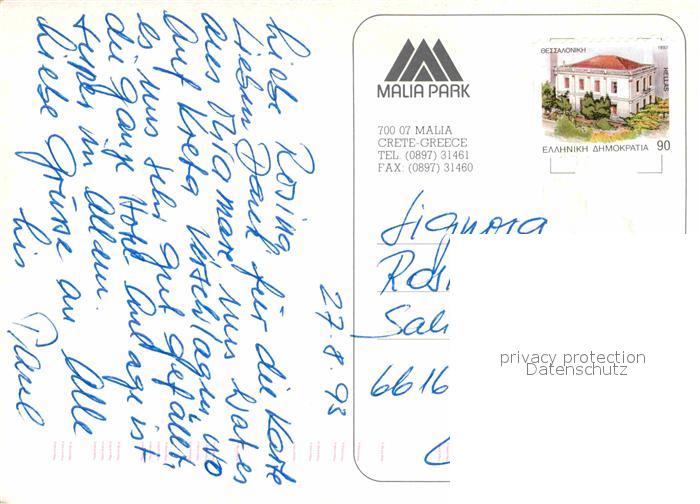 Liebe Rosina
Lieben Dank für die Karte
aus Diamare uns hat es
auf Kreta verschlagen wo
es uns sehr gut gefällt,
die ganze Hotel Anlage ist
super in Allem.
Liebe Grüsse an Alle
bis
27.8.93
MALIA PARK
700 07 MALIA
CRETE-GREECE
TEL. (0897) 31461
FAX: (0897) 31460
ΘΕΣΣΑΛΟΝΙΚΗ
HELLAS
ΕΛΛΗΝΙΚΗ ΔΗΜΟΚΡΑΤΙΑ 90
Signora
Ros
Sal
6616
privacy protection
Datenschutz